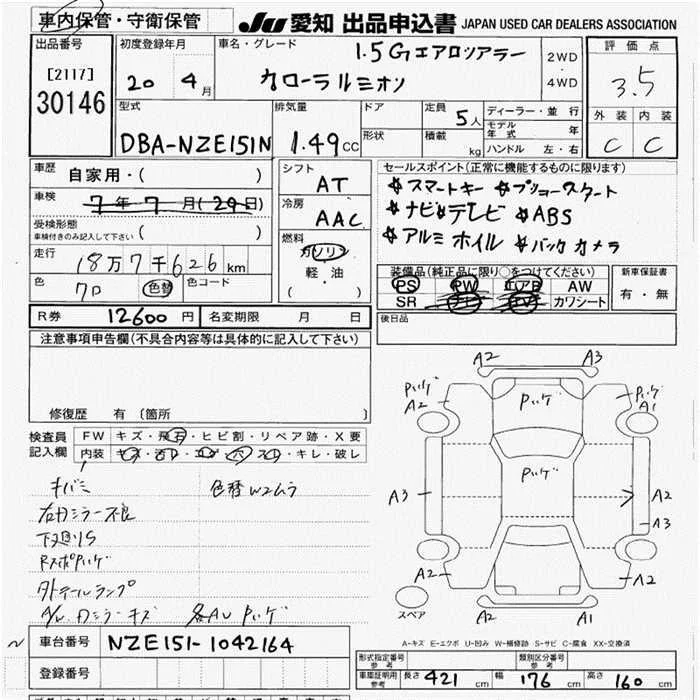 車内保管・守衛保管
JU 愛知 出品申込書 JAPAN USED CAR DEALERS ASSOCIATION
出品番号
[2117]
30146
初度登録年月
20 4月
車名・グレード
1.5Gエアロツアラー
カローラルミオン
2WD
・
4WD
評価点
3.5
外装 内装
C C
型式
DBA-NZE151N
排気量
1.49cc
ドア
形状
定員 5人
積載 kg
ディーラー・並行
モデル年式 年
ハンドル 左・右
車歴 自家用・( )
車検 7年7月(29日)
受検形態
車検付きのみ記入して下さい ( )
走行 18万7千626km
色 クロ 色替 色コード
シフト
AT
冷房
AAC
燃料
ガソリン
軽・油
( )
セールスポイント(正常に機能するものに限ります)
☆スマートキー ☆プッシュスタート
☆ナビ☆テレビ ☆ABS
☆アルミホイル ☆バックカメラ
装備品(純正品に限り○をつけてください)
PS PW エアB AW
SR ナビ TV カワシート
新車保証書
有・無
R券 12600円 名変期限 月 日
後日品
注意事項申告欄(不具合内容等は具体的に記入して下さい)
修復歴 有〔箇所 〕
検査員記入欄
FW キズ・飛石・ヒビ割・リペア跡・X要
内装 キズ・汚レ・コゲ・穴・スレ・キレ・破レ
キバミ 色替Wコムラ
右ドミラー不良
下廻りS
外テールランプ
A2 A3
A2 A1
A3 A2
A3
A2 A2
A2 A1
スペア
A-キズ E-エクボ U-凹み W-補修跡 S-サビ C-腐食 XX-交換済
車台番号 NZE151-1042164
登録番号
形式指定番号 参考
類別区分番号 参考
車庫証明用 参考 長さ 421cm 幅 176cm 高さ 160cm